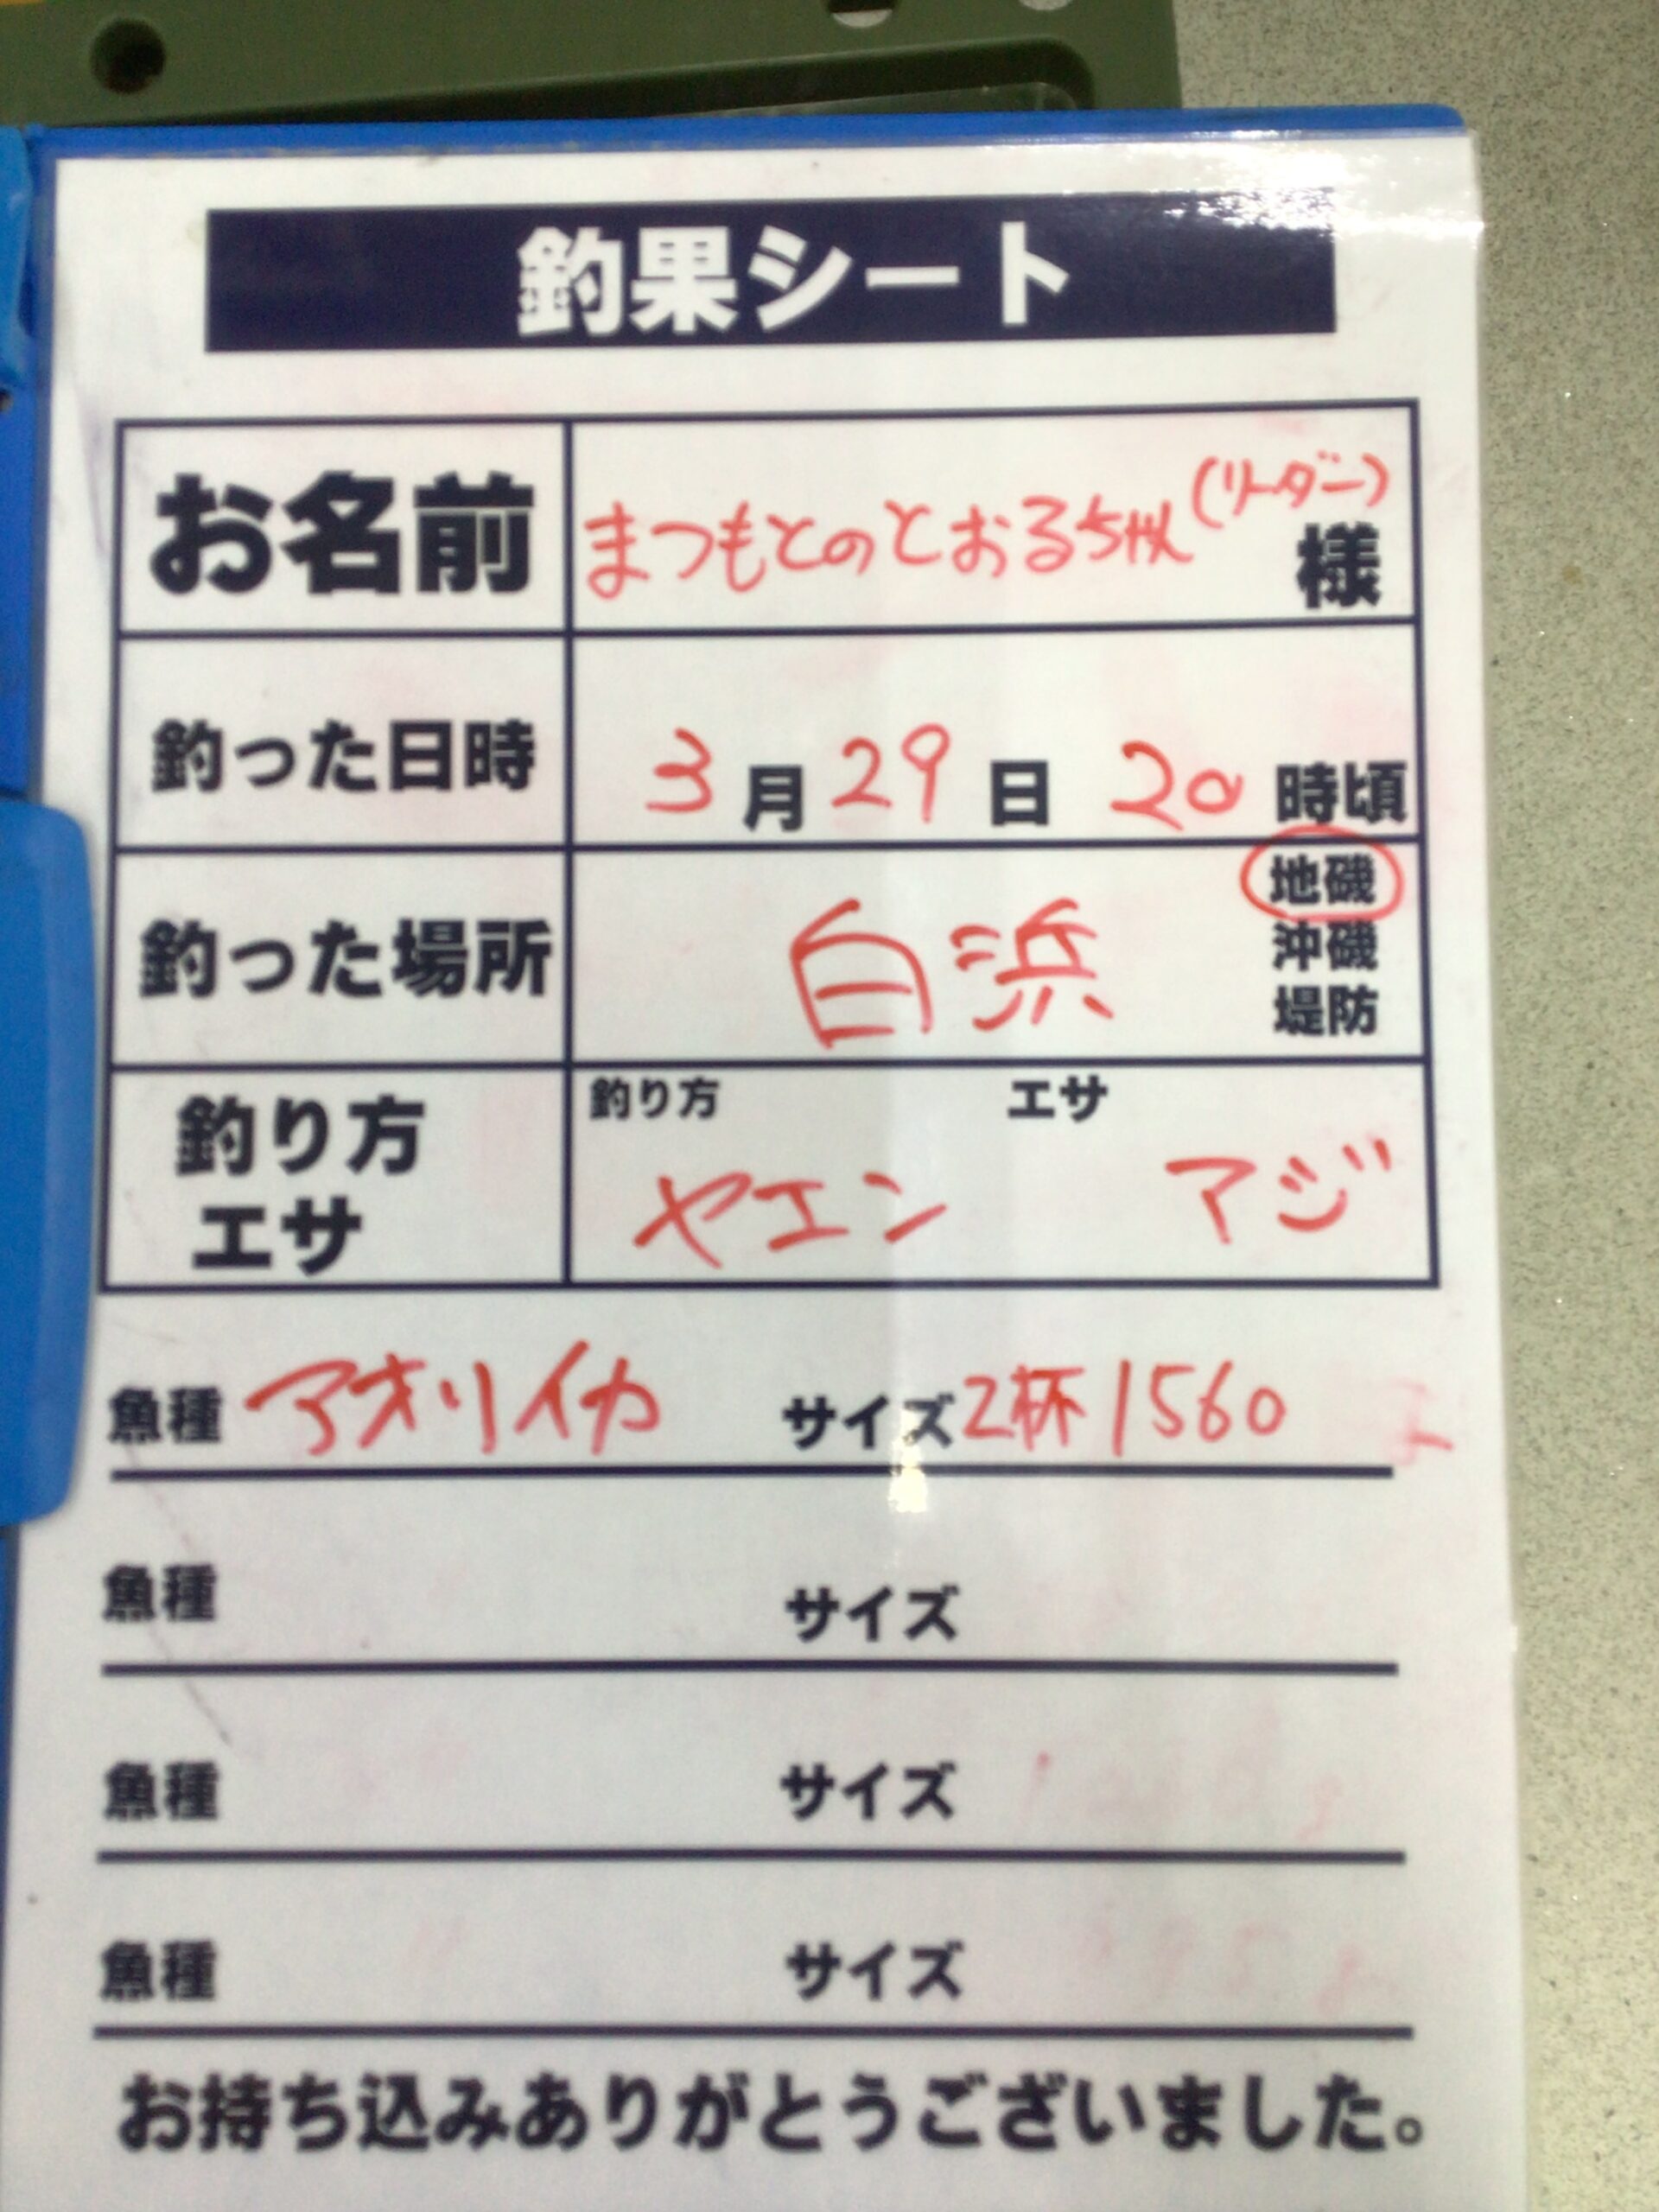 釣果シート
お名前 まつもとのとおるちゃん(リーダー)様
釣った日時 3月29日 20時頃
釣った場所 白浜 地磯
沖磯
堤防
釣り方 エサ 釣り方 エサ
ヤエン アジ
魚種 アオリイカ サイズ 2杯 1560
魚種 サイズ
魚種 サイズ
魚種 サイズ
お持ち込みありがとうございました。